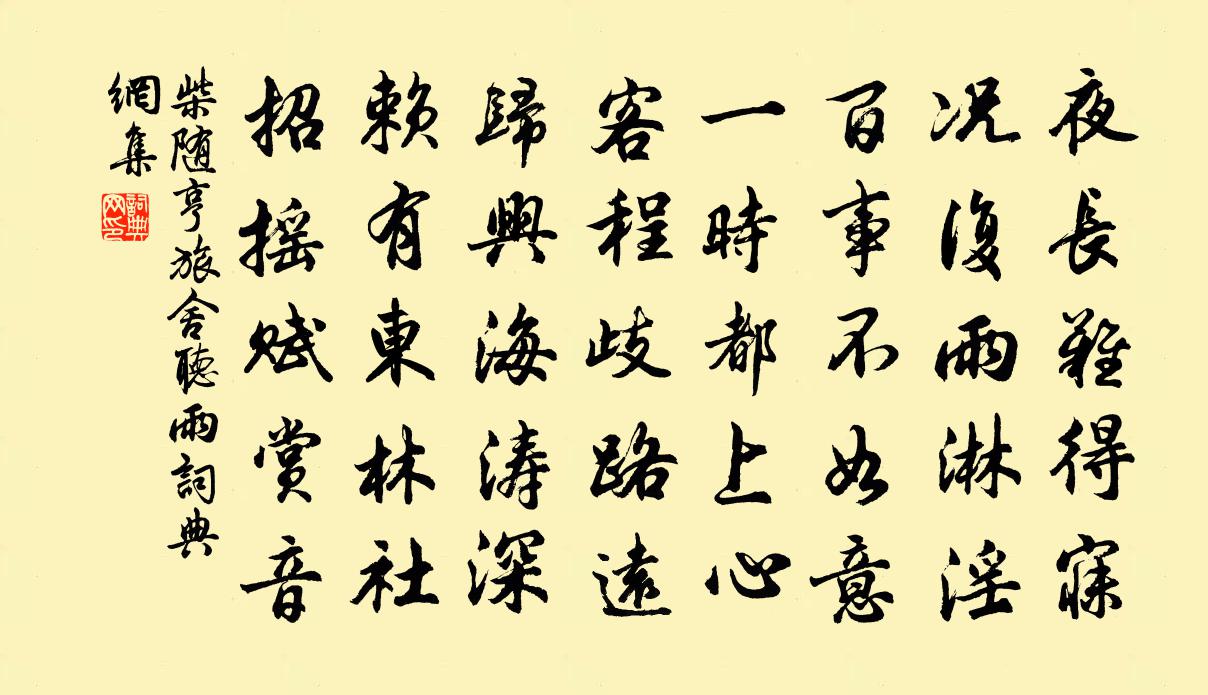 夜長難得寐
况復雨淋淫
百事不如意
一時都上心
客程歧路遠
歸興海濤深
賴有東林社
招摇赋賞音
柴随亨旅舍聽雨詞典
網集
詞典
网印